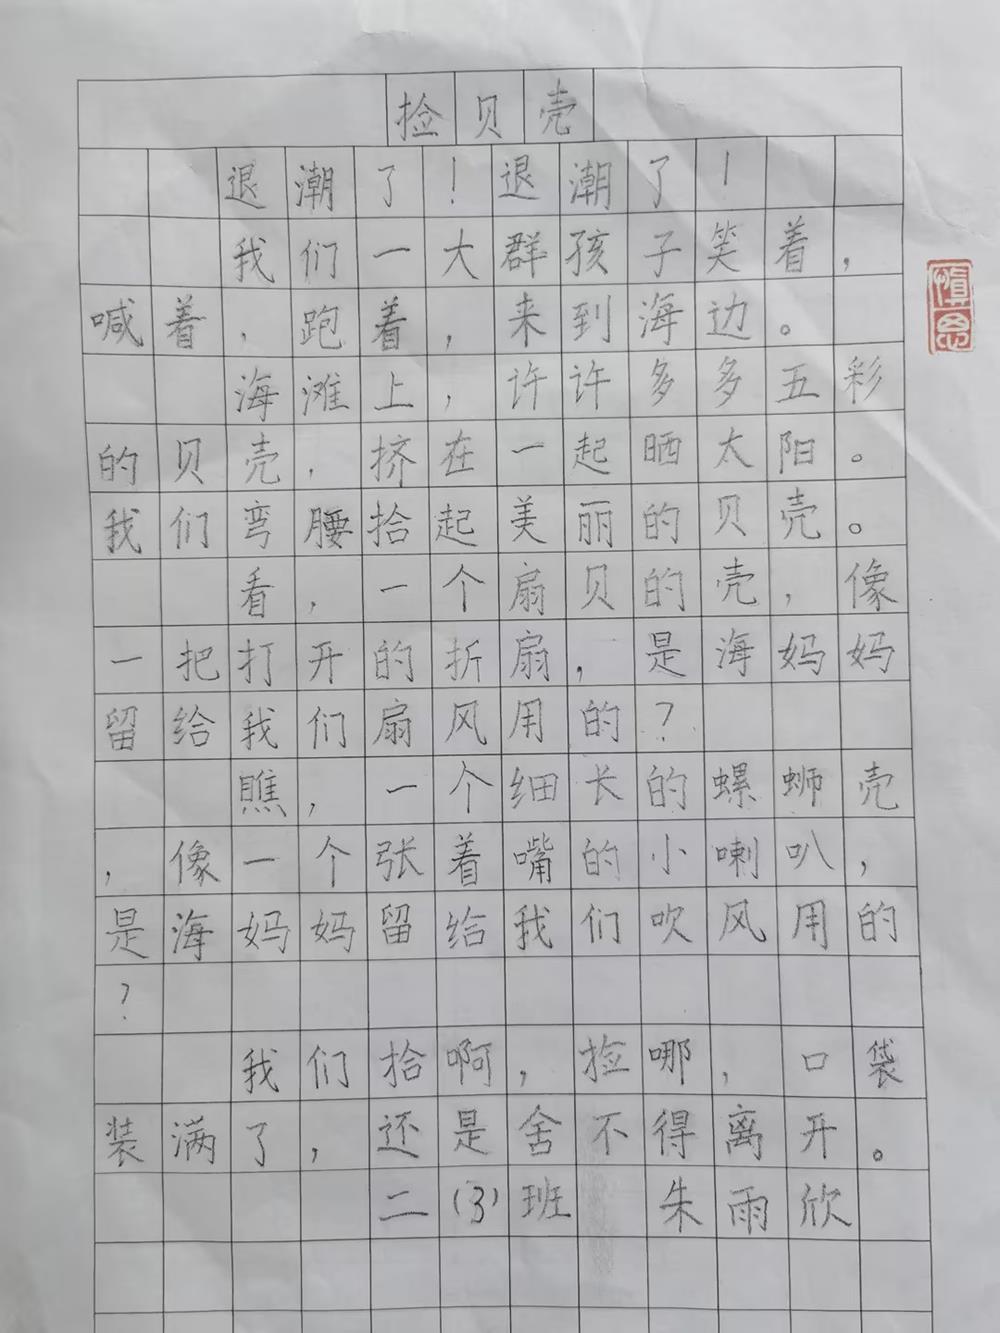 捡贝壳
退潮了！退潮了！
我们一大群孩子笑着，
喊着，跑着，来到海边。
海滩上，许许多多五彩
的贝壳，挤在一起晒太阳。
我们弯腰拾起美丽的贝壳。
看，一个扇贝的壳，像
一把打开的折扇，是海妈妈
留给我们扇风用的？
瞧，一个细长的螺蛳壳
，像一个张着嘴的小喇叭，
是海妈妈留给我们吹风用的
？
我们拾啊，捡哪，口袋
装满了，还是舍不得离开。
二(3)班 朱雨欣
慎思